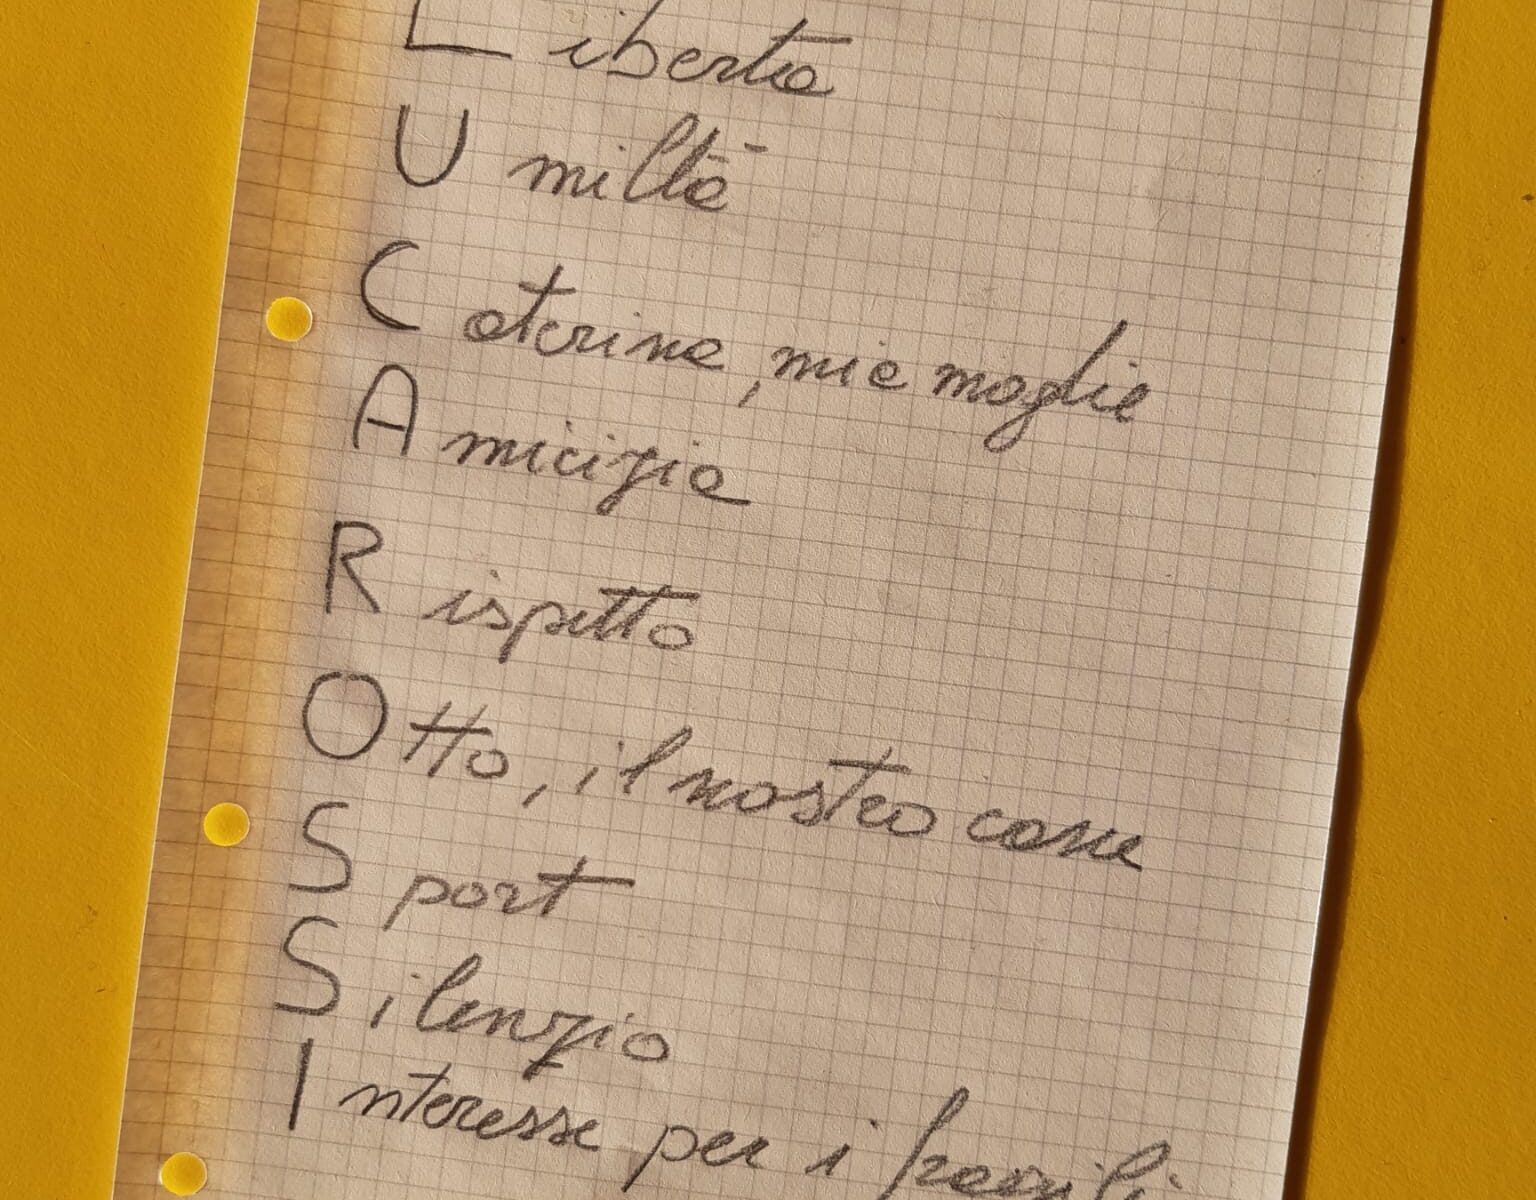 Libertà
Umiltà
Caterina, mia moglie
Amicizia
Rispetto
Otto, il nostro cane
Sport
Silenzio
Interesse per i fragili